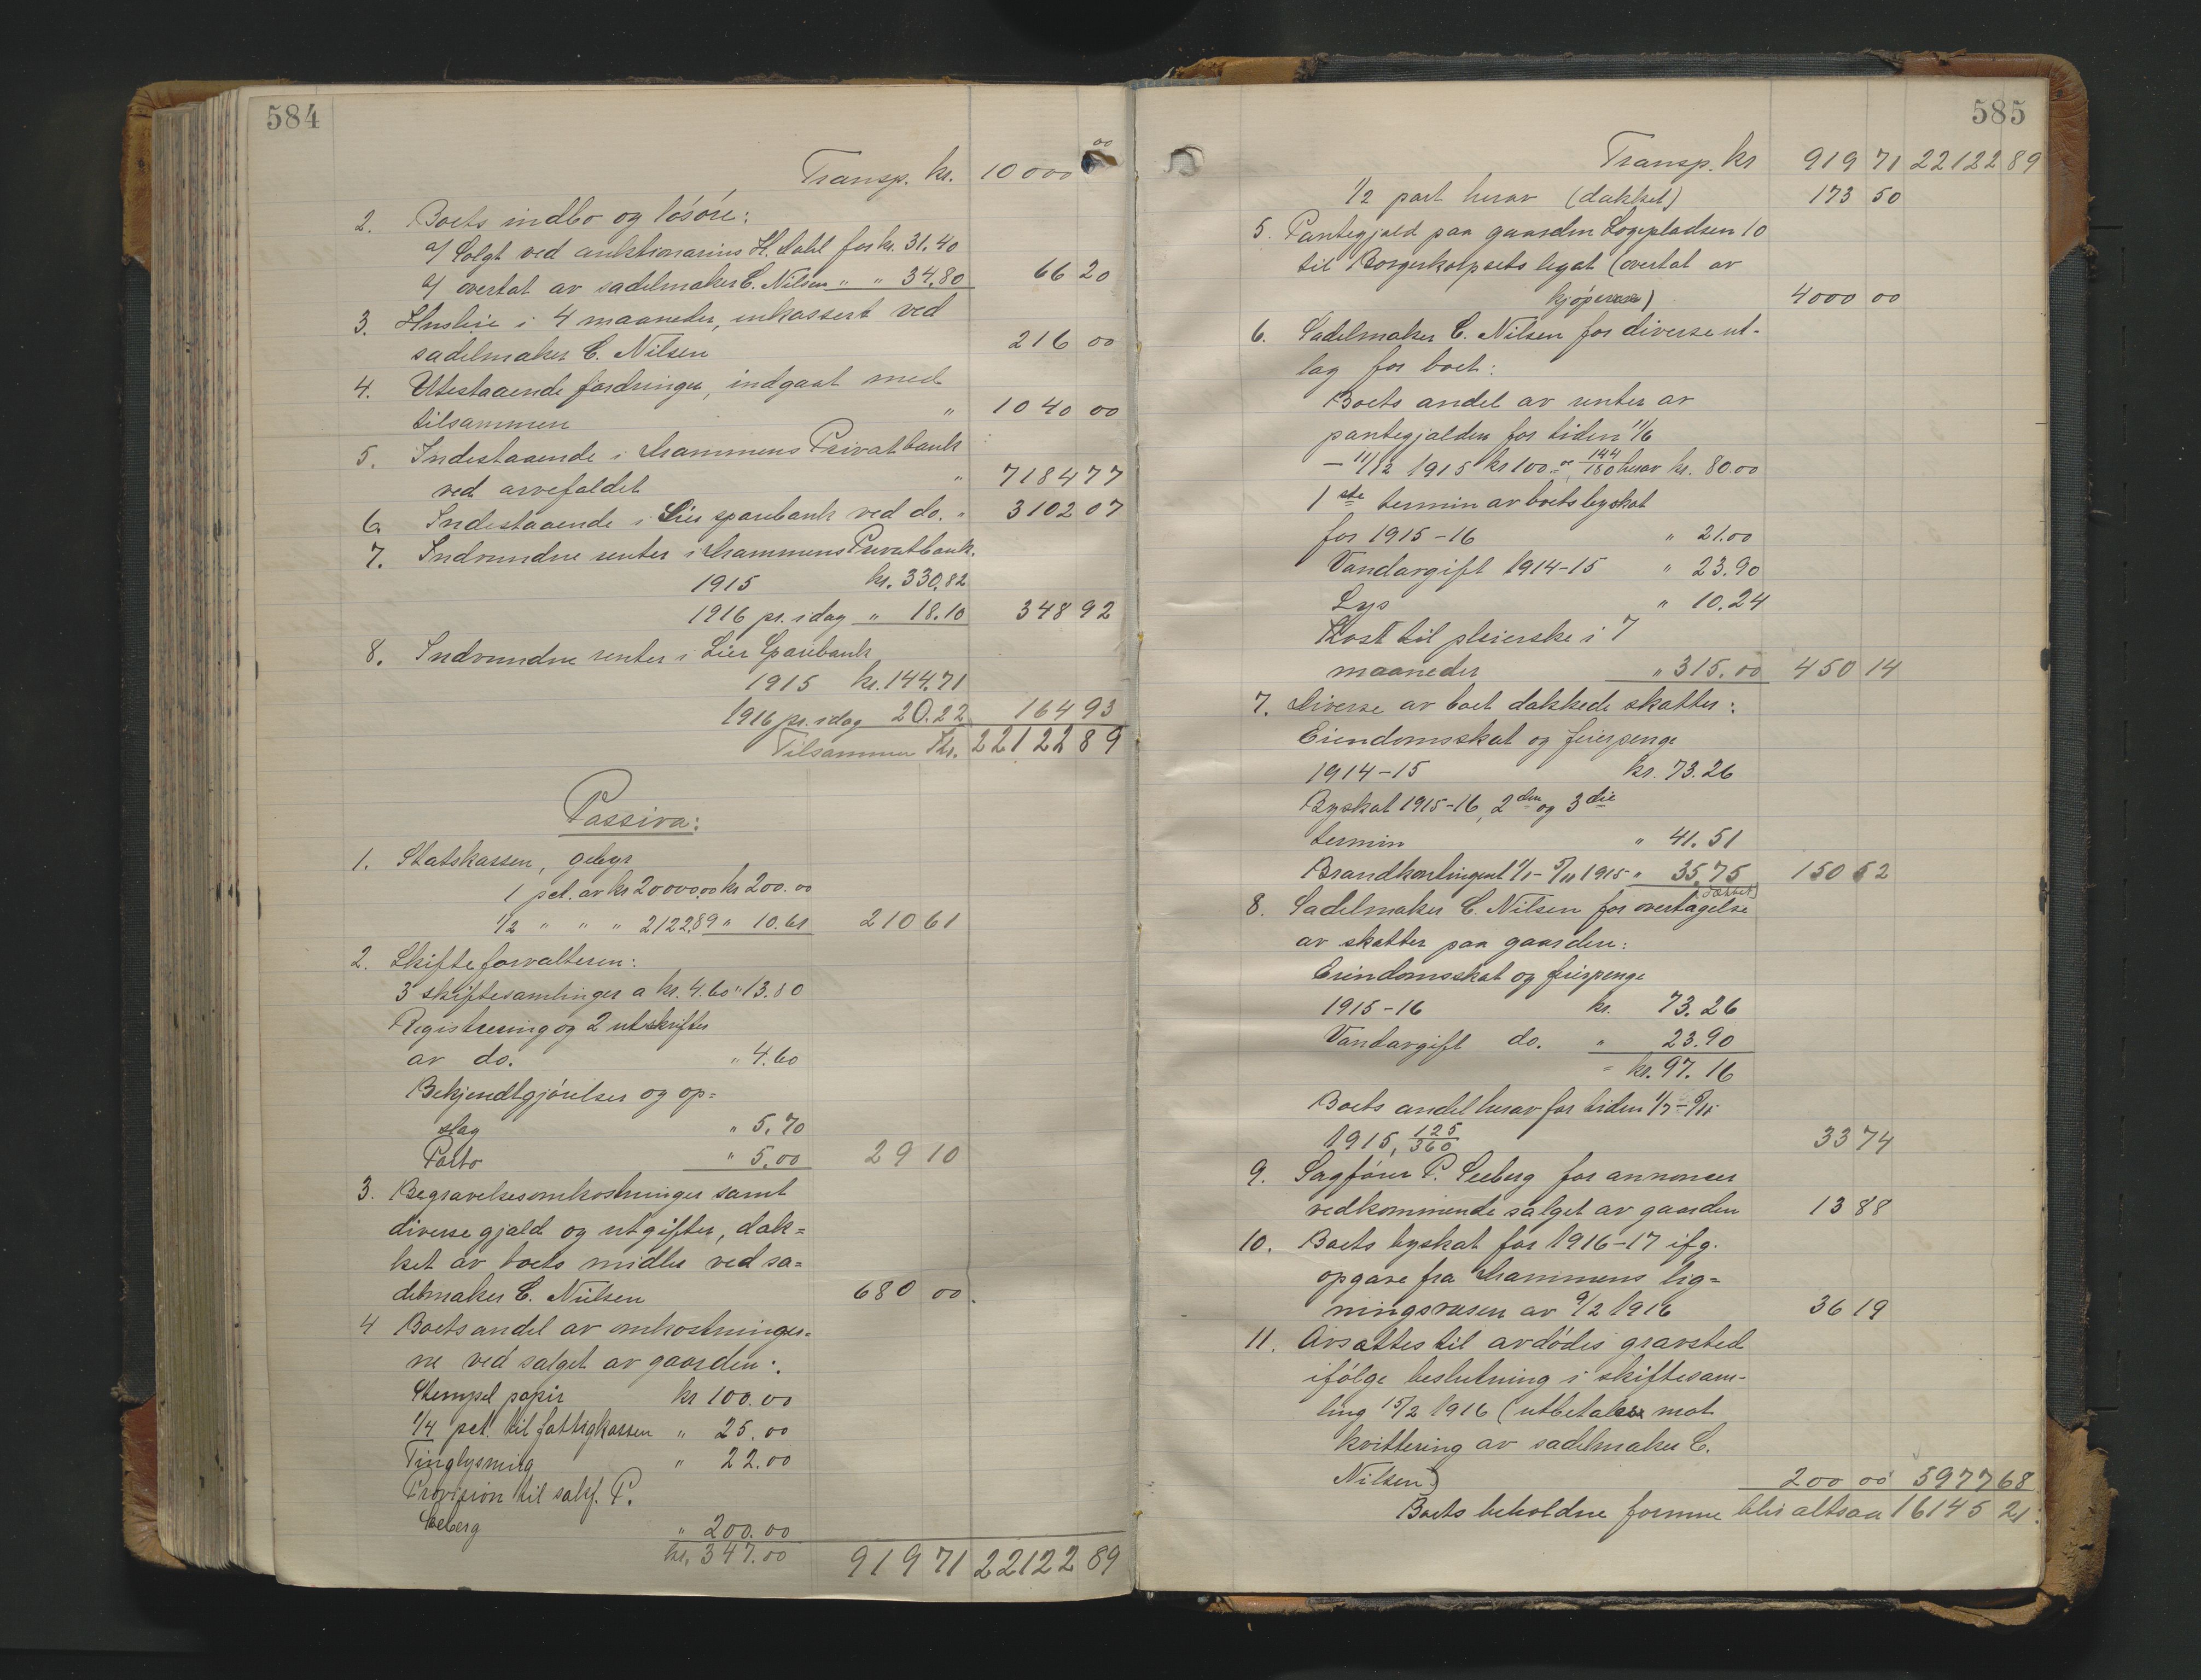 584
Transp. kr. 10000 00
2. Boets indbo og lösöre:
a/ Solgt ved auktionarius H. Dahl for kr. 31.40
a/ overtat av sadelmaker C. Nilsen " " 34.80 66 20
3. Husleie i 4 maaneder, inkassert ved
sadelmaker C. Nilsen 216 00
4. Utestaaende fordringer, indgaat med
tilsammen " 1040 00
5. Indestaaende i Drammens Privatbank
ved arvefaldet " 7184 77
6. Indestaaende i Lier sparebank ved do. " 3102 07
7. Indvundne renter i Drammens Privatbank.
1915 kr. 330.82
1916 pr. idag " 18.10 348 92
8. Indvundne renter i Lier Sparebank
1915 kr. 144.71
1916 pr. idag 20.22 164 93
Tilsammen Kr. 22122 89
Passiva:
1. Statskassen, gebyr
1 pct. av kr 20000.00 kr 200.00
1/2 " " " 2122.89 " 10.61 210 61
2. Skifteforvalteren:
3 skiftesamlinger a kr. 4.60 " 13.80
Registrering og 2 utskrifter
av do. " 4.60
Bekjendtgjörelser og op=
slag " 5.70
Porto " 5.00 29 10
3. Begravelsesomkostninger samt
diverse gjæld og utgifter, dæk=
ket av boets midler ved sa=
delmaker C. Nilsen 680 00.
4 Boets andel av omkostninger=
ne ved salget av gaarden:
Stempel papir kr 100.00
1/4 pct. til fattigkassen " 25.00
Tinglysning " 22.00
Provision til sakf. P.
Seeberg " 200.00
kr. 347.00 919 71 22122 89
585
Transp. kr 919 71 22122 89
1/2 part herav (dækket) 173 50
5. Pantegjæld paa gaarden Logepladsen 10
til Borgerkorpsets legat (overtat av
kjöperen) 4000 00
6. Sadelmaker C. Nilsen for diverse ut-
læg for boet:
Boets andel av renter av
pantegjælden for tiden 11/6
– 11/12 1915 kr 100.00, 144/180 herav kr. 80.00
1ste termin av boets byskat
for 1915-16 " 21.00
Vandavgift 1914-15 " 23.90
Lys " 10.24
Kost til pleierske i 7
maaneder " 315.00 450 14
7. Diverse av boet dækkede skatter:
Eiendomsskat og feierpenge
1914-15 kr. 73.26
Byskat 1915-16, 2den og 3die
termin " 41.51
Brandkontingent 1/1 - 5/11 1915 " 35.75 150 52
8. Sadelmaker C. Nilsen for overtagelse
av skatter paa gaarden:
Eiendomsskat og feierpenge
1915-16 kr. 73.26
Vandavgift do. " 23.90
= kr. 97.16
Boets andel herav for tiden 1/7 - 5/11
1915, 125/360 33 74
9. Sagförer P. Seeberg for annoncer
vedkommende salget av gaarden 13 88
10. Boets byskat for 1916-17 ifg.
opgave fra Drammens lig=
ningsvæsen av 9/2 1916 36 19
11. Avsættes til avdödes gravsted
ifölge beslutning i skiftesam-
ling 15/2 1916 (utbetales mot
kvittering av sadelmaker C.
Nilsen) 200 00 5977 68
Boets beholdne formue blir altsaa 16145 21.